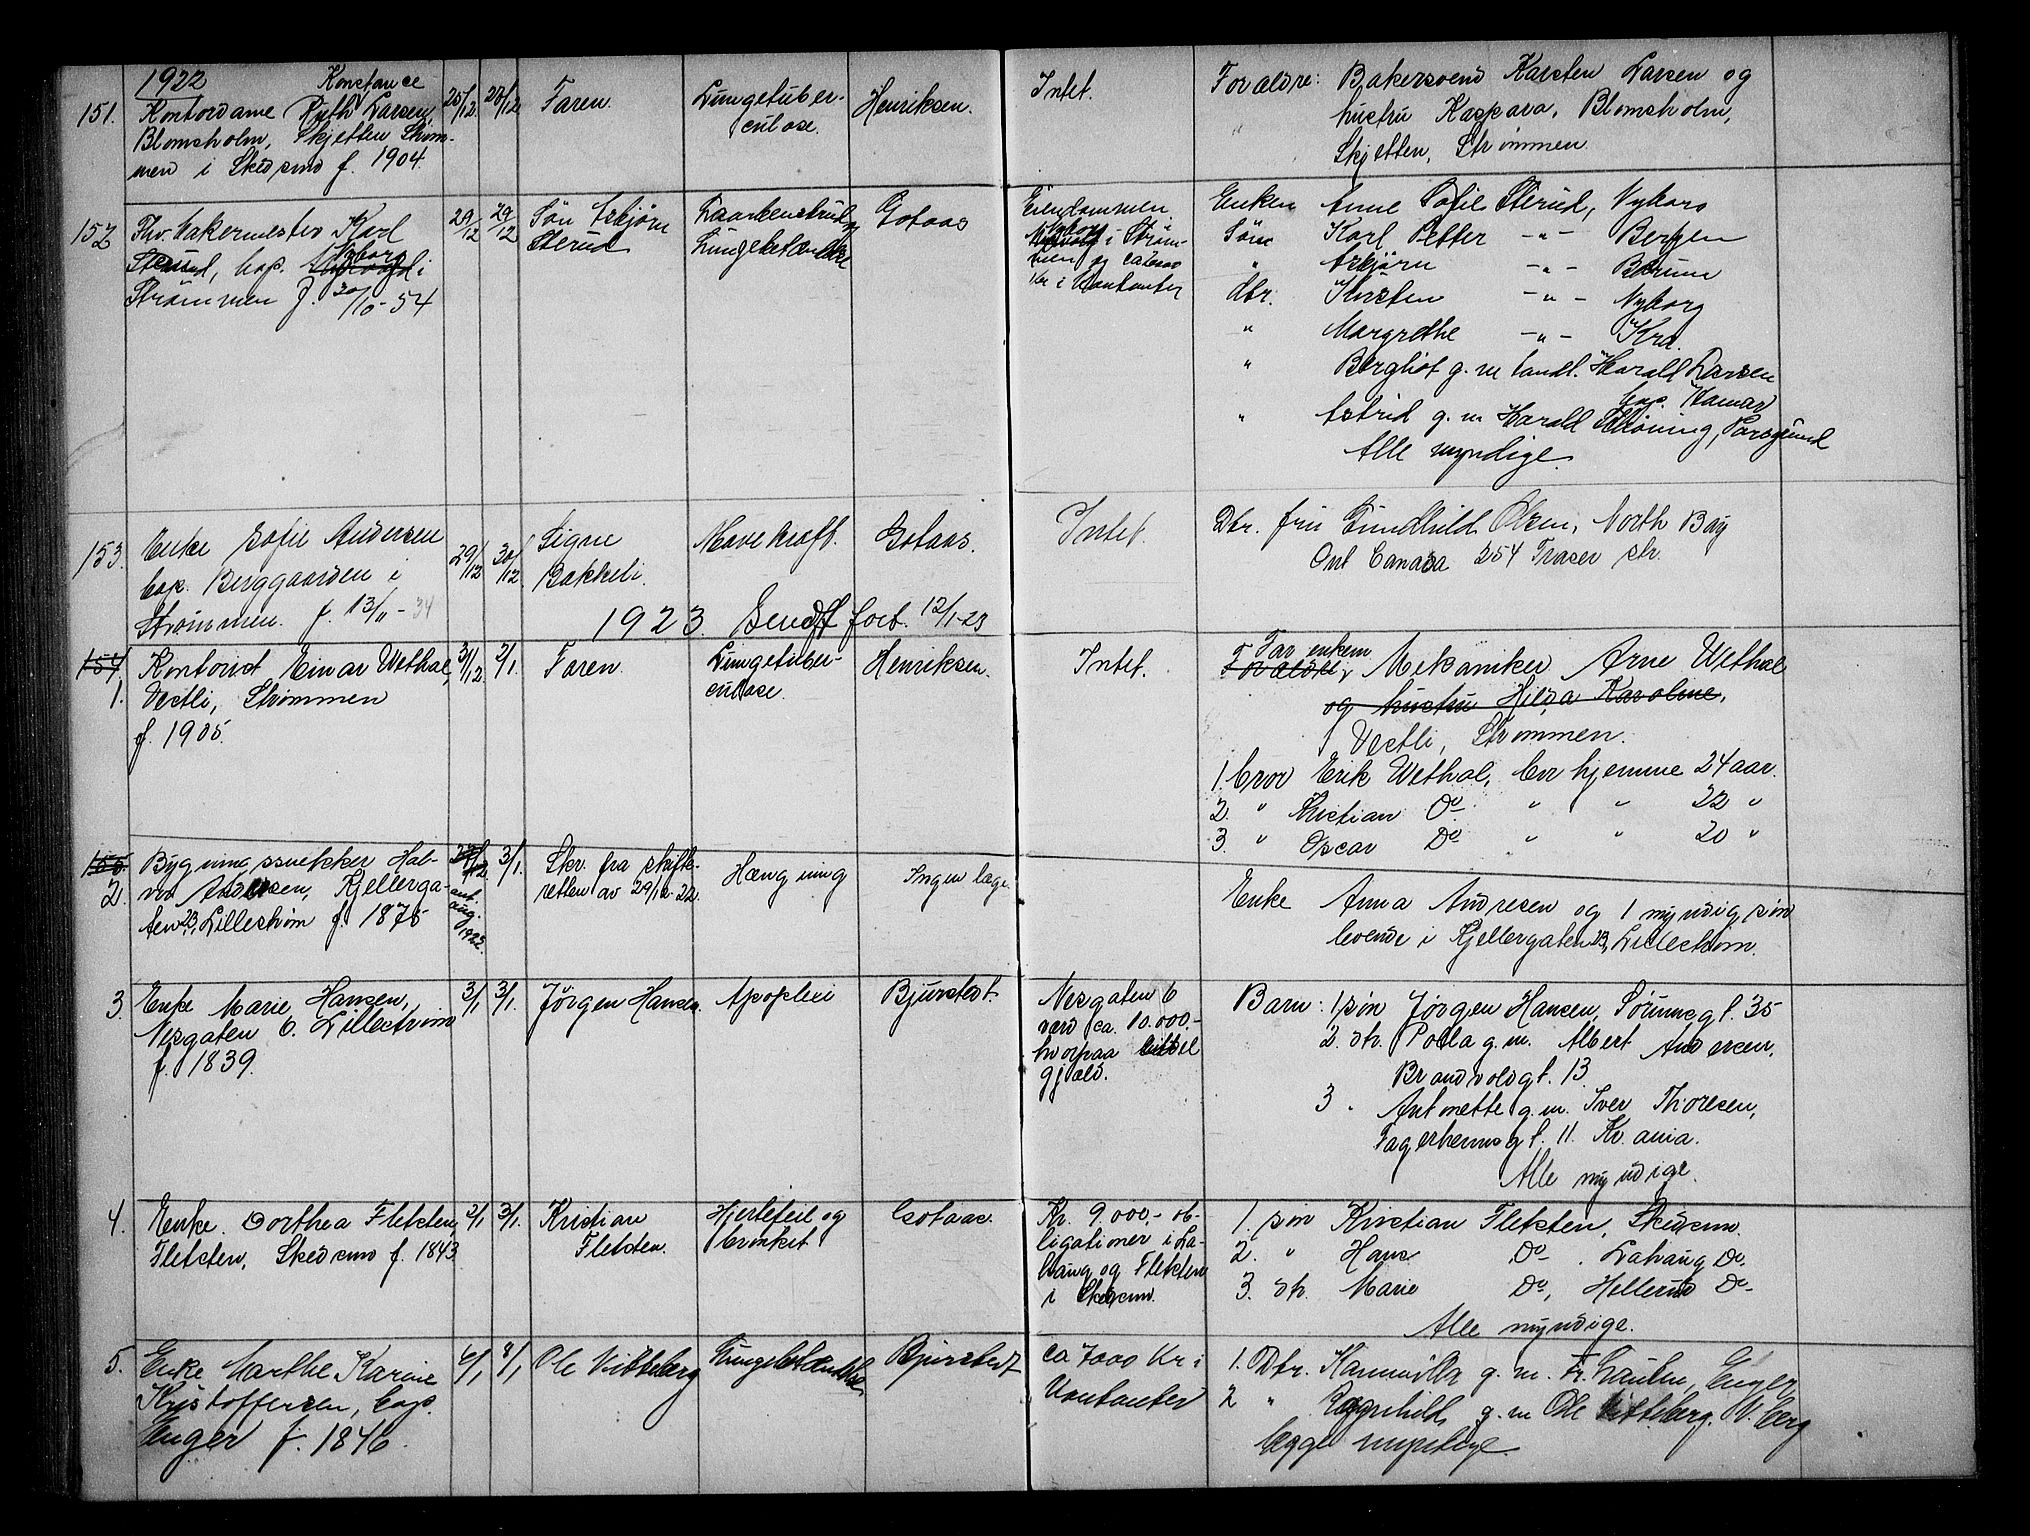 1922
Konstance
151. Kontordame Ruth Larsen,
Blomsholm, Skjetten Strøm-
men i Skedsmo f. 1904.
28/12. 28/12
Faren.
Lungetuber-
culose.
Henriksen.
Intet.
Forældre: Bakersvend Karsten Larsen og
" hustru Kaspara, Blomsholm,
Skjetten, Strømmen
152 Fhv. Bakermester Karl
Sterud, bop. Nyborg i
Strømmen f. 30/10-54
29/12 29/12
Søn Asbjørn
Sterud
Lungebetændelse
Gotaas
Eiendommen
Nyborg i Strøm-
men og
Kr i Kontanter
Enken Anne Sofie Sterud, Nyborg
Søn Karl Petter -"- Bergen
" Asbjørn -"- Bærum
Dtr. Kirsten -"- Nyborg
" Margrethe -"- Kra.
" Bergliot g. m tandl. Harald Larsen
bop. Hamar
" Astrid g. m Harald Skøning, Porsgrund
Alle myndige.
153. Enke Sofie Andersen
bop. Berggaarden i
Strømmen. f. 13/11-34
29/12 30/12
Signe
Bakkeli.
Mavekræft.
Gotaas.
Intet.
Dtr. fru Gundhild Olsen, North Bay
Ont Canada 254 Fraser str.
1923. Sendt fort. 12/1-23
154
1. Kontorist Einar Wethal,
Vestli, Strømmen
f. 1905.
31/12 2/1.
Faren.
Lungetuber-
culose.
Henriksen.
Intet.
Far enkem
Forældre, Mekaniker Arne Wethal
og hustru Hilda Karoline,
Vestli, Strømmen.
1. bror Erik Wethal, bor hjemme 24 aar.
2. " Kristian Do " " 22 "
3. " Oscar Do " " 20 "
155.
2. Bygningssnekker Hal-
vor Andresen, Kjellerga-
ten 23, Lillestrøm f. 1875
ant.
aug.
1922.
3/1.
Skr. fra skifte-
retten av 29/12-22.
Hængning
Ingen læge.
Enke Anna Andresen og 1 myndig søn
boende i Kjellergaten 23, Lillestrøm.
3. Enke Marie Hansen,
Nesgaten 6. Lillestrøm
f. 1839.
3/1 3/1.
Jørgen Hansen.
Apoplexi
Bjurstedt.
Nesgaten 6
værd ca. 10.000,-
hvorpaa litt
gjæld.
Barn: 1 søn Jørgen Hansen, Sørumsgt. 35
2. dtr. Polla g. m. Albert Andersen,
Brandvoldgt. 13
3 " Antonette g. m. Iver Thoresen,
Fagerheimsgt. 11. Kr.ania.
Alle myndige.
4. Enke Dorthea Fletsten,
Fletsten, Skedsmo f. 1843
2/1 3/1.
Kristian
Fletsten.
Hjertefeil og
bronkit
Gotaas.
Kr. 9.000,- ob-
ligationer i La-
haug og Fletsten
i Skedsmo.
1. søn Kristian Fletsten, Skedsmo.
2. " Hans Do . Lahaug Do.
3. dtr. Marie Do, Hellerud Do
Alle myndige.
5. Enke Marthe Karine
Kristoffersen, bop.
Enger f. 1846.
6/1 8/1
Ole Vitteberg
Lungebetændelse
Bjurstedt
Ca 7000 Kr i
Kontanter
1. Dtr. g. m. Fr. Enger
2 " Ragnhild g. m Ole Vitteberg.
begge myndige